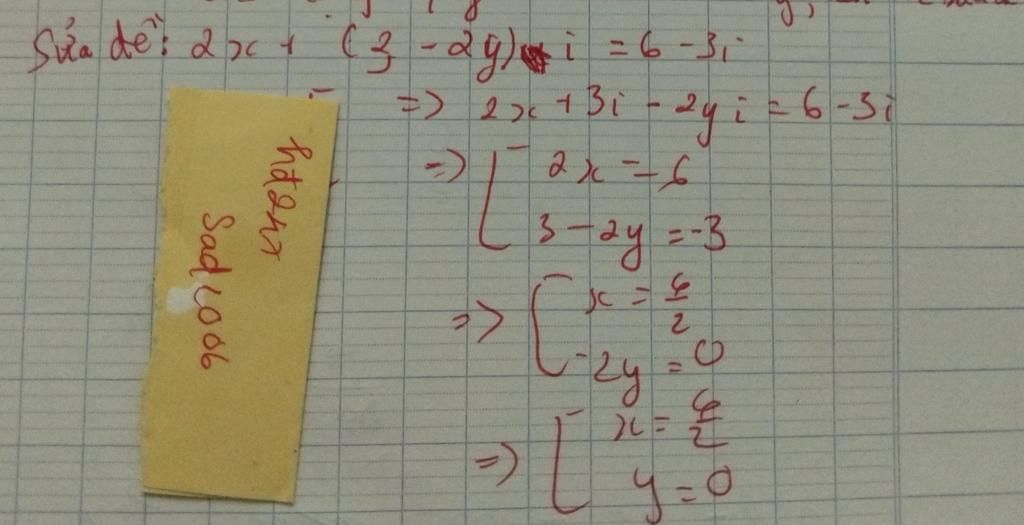 Sửa đề: 2x + (3 - 2y) i = 6 - 3i
=> 2x + 3i - 2y i = 6 - 3i
=> [ 2x = 6
3 - 2y = -3
=> [ x = 6/2
-2y = 0
=> [ x = 6/2
y = 0
Sad1006